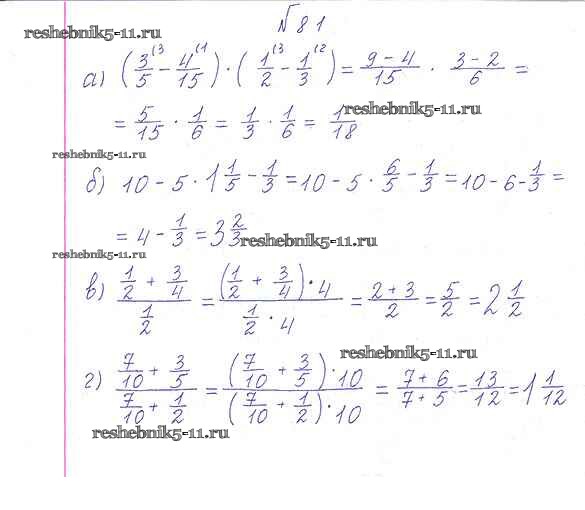 №81
reshebnik5-11.ru
а) (3/5 (3 - 4/15 (1) · (1/2 (3 - 1/3 (2) = 9-4/15 · 3-2/6 =
= 5/15 · 1/6 = 1/3 · 1/6 = 1/18
reshebnik5-11.ru
reshebnik5-11.ru
б) 10 - 5 · 1 1/5 - 1/3 = 10 - 5 · 6/5 - 1/3 = 10 - 6 - 1/3 =
= 4 - 1/3 = 3 2/3
reshebnik5-11.ru
reshebnik5-11.ru
в) (1/2 + 3/4)/(1/2) = ((1/2 + 3/4) · 4)/(1/2 · 4) = (2+3)/2 = 5/2 = 2 1/2
reshebnik5-11.ru
г) (7/10 + 3/5)/(7/10 + 1/2) = ((7/10 + 3/5) · 10)/((7/10 + 1/2) · 10) = (7+6)/(7+5) = 13/12 = 1 1/12
reshebnik5-11.ru